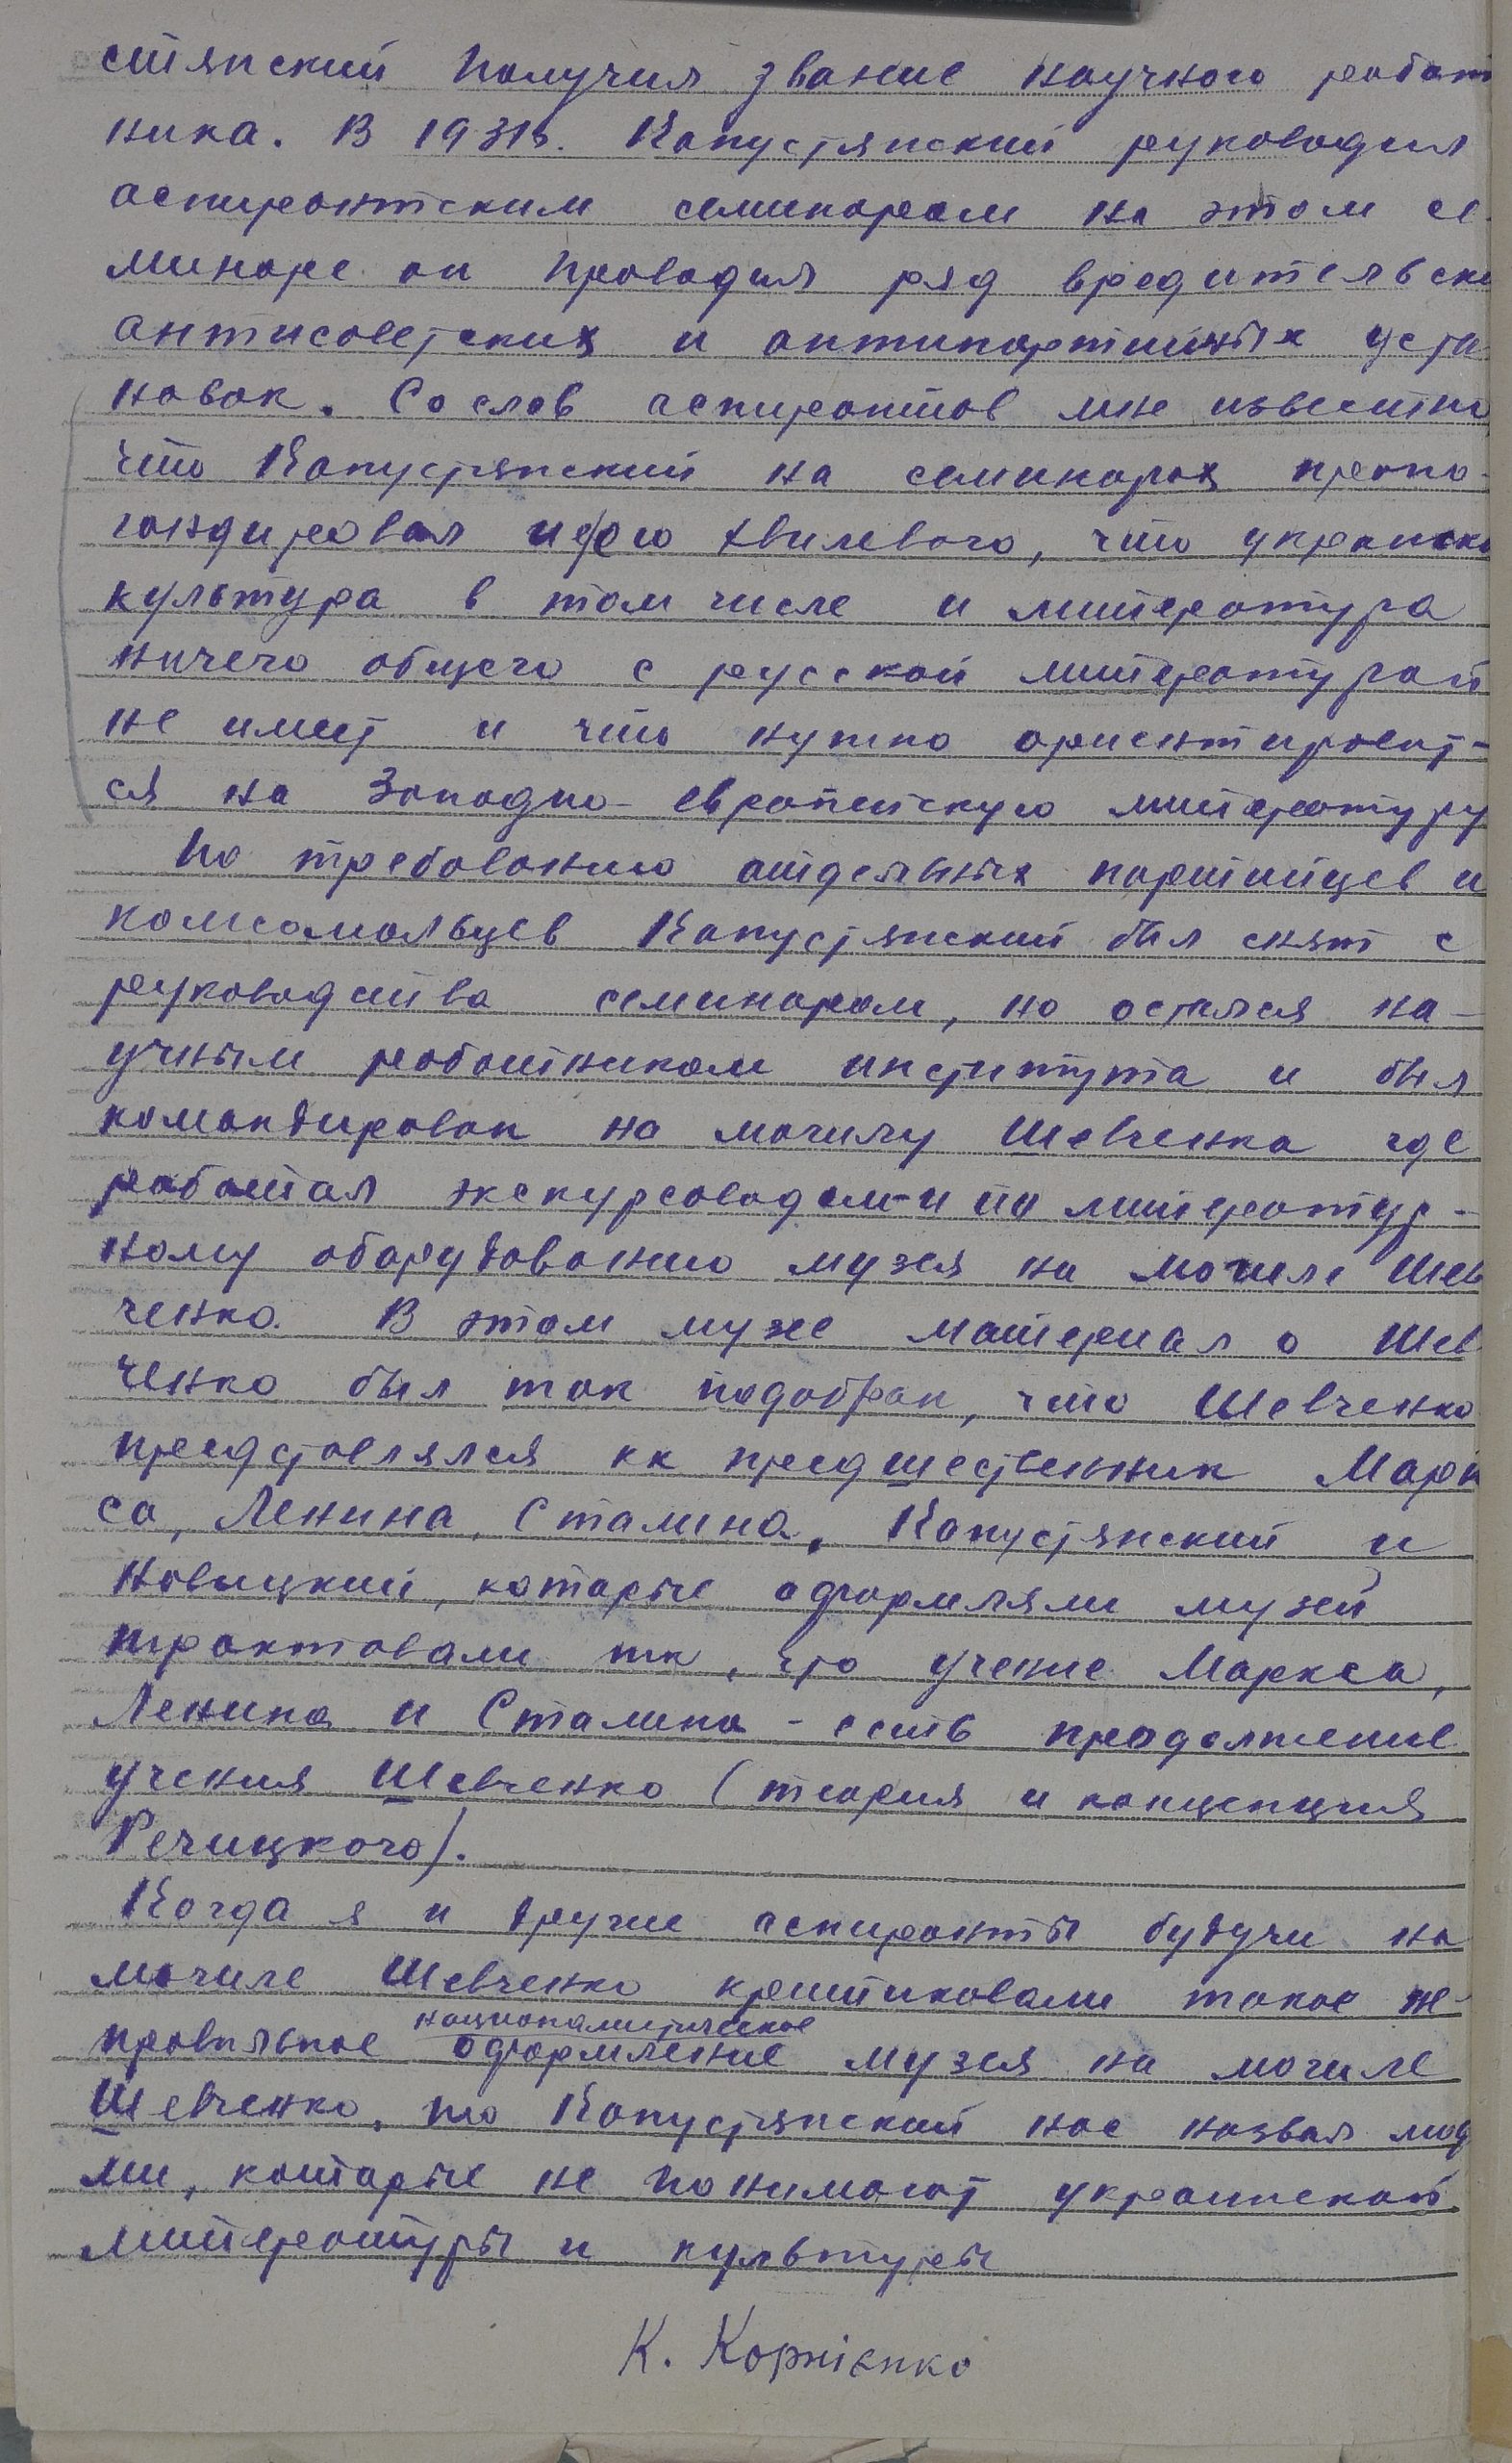 стянский получил звание научного работ
ника. В 1931г. Капустянский руководил
аспирантским семинаром на этом се-
минаре он проводил ряд вредительски
антисоветских и антипартийных уста
новок. Со слов аспирантов мне известно
что Капустянский на семинарах пропа-
гандировал идею Хвилевого, что украинска
культура в том числе и литература
ничего общего с русской литературой
не имеет и что нужно ориентироват-
ся на Западно-европейскую литературу
По требованию отдельных партийцев и
комсомольцев Капустянский был снят с
руководства семинаром, но остался на-
учным работником института и был
командирован на могилу Шевченка где
работал экскурсоводом и по литератур-
ному оборудованию музея на могиле Шев
ченко. В этом музее материал о Шев
ченко был так подобран, что Шевченко
представлялся кк предшественник Марк
са, Ленина, Сталина. Капустянский и
Новицкий, которые оформляли музей
трактовали тк, что учение Маркса,
Ленина и Сталина - есть продолжение
учения Шевченко (теория и концепция
Речицкого).
Когда я и другие аспиранты будучи на
могиле Шевченко критиковали такое не-
националистическое
правильное оформление музея на могиле
Шевченко, то Капустянский нас назвал людь
ми, которые не понимают украинской
литературы и культуры
К. Корнієнко